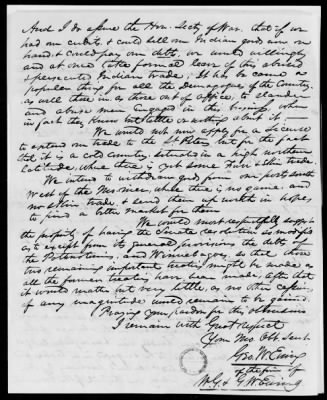 And I do assure the Hon. Secty of War, that if we
had our debts, & could sell our Indian goods now on
hand, & could pay our debts, we would willingly
and at once take formal leave of this abused
& persecuted Indian trade; It has become a
popular thing for all the Demagogues of the Country,
as well those in as those out of office, to clamor
and abuse men engaged in the business, when
in fact they know but little or nothing about it.
We would not now apply for a License
to extend our trade to the St Peters, but for the fact
that it is a cold country, situated in a high northern
Latitude, where there is yet some Furr & skin trade.
We intend to withdraw goods from our posts south
West of the Missouri, where there is no game, and
no skin trade & send them up north in hopes,
to find a better market for them
We would most respectfully suggest
the propriety of having the Senate resolution so modified
as to except from its general provisions the debts of
the Pottawatomies, and Winnebagoes, so that those
two remaining important treaties might be made as
all the former treaties have been made; after that
it would matter but very little, as no other cessions
of any magnitude would remain to be gained.
Praying your pardon for this obtrusion
I remain with Great respect
Your Mo Obt Servt
Geo W. Ewing
of the firm of
W.G. & G.W. Ewing